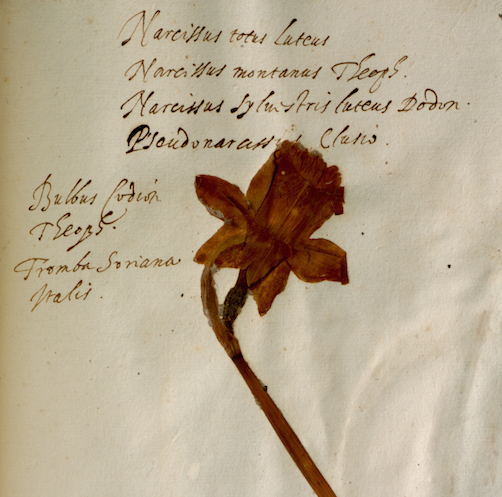 Narcissus totus luteus
Narcissus montanus Theoph.
Narcissus sylvestris luteus Dodon.
Pseudonarcissus Clusio.
Bulbus Codion
Theoph.
Tromba Soriana
Italis.